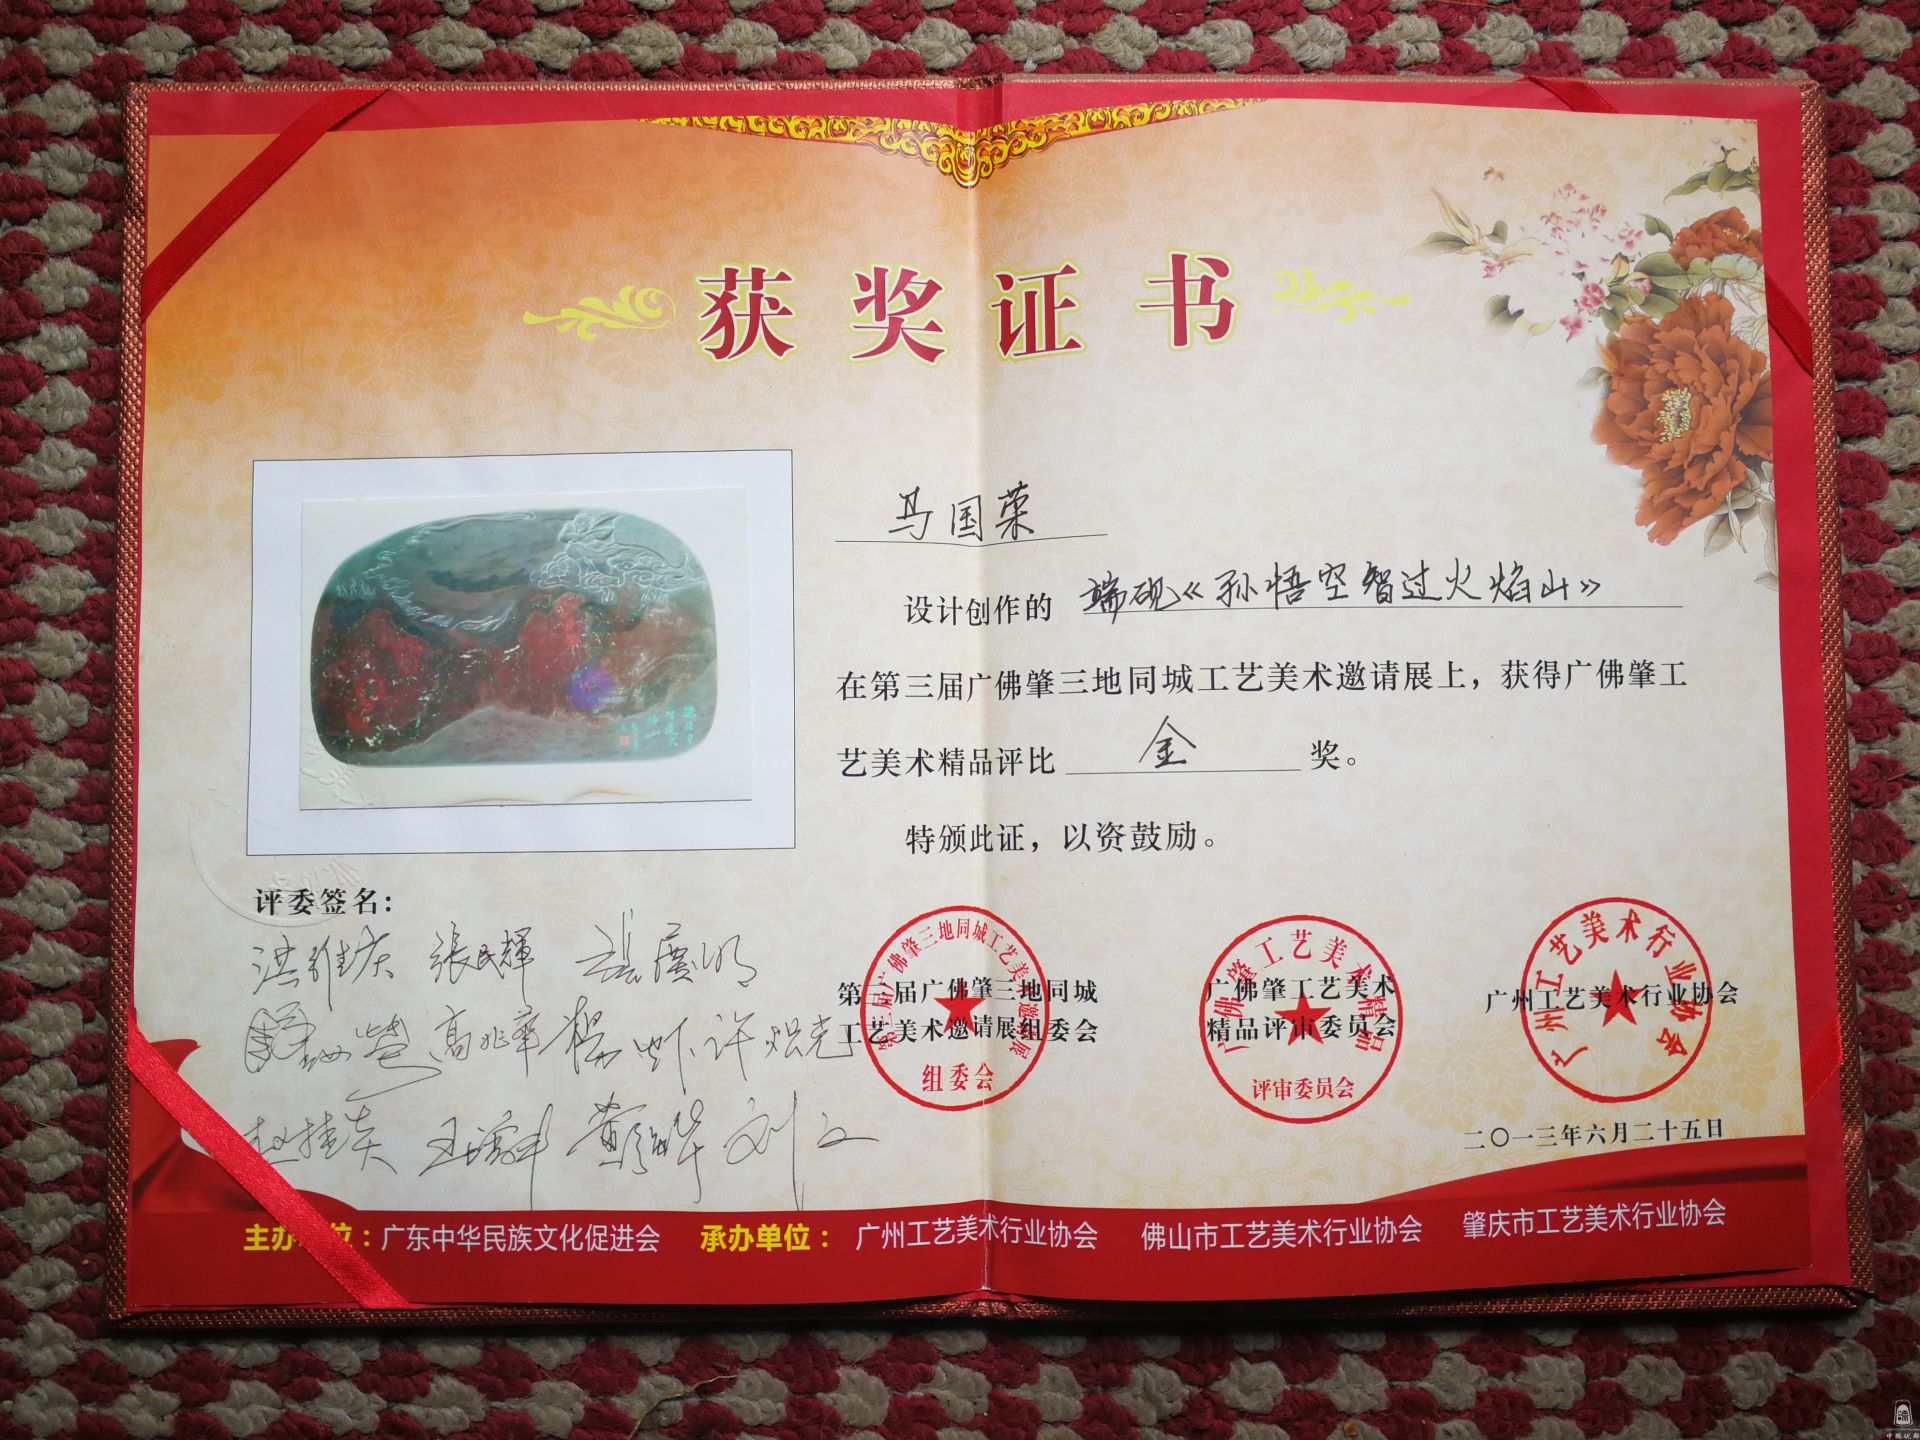 获奖证书
马国荣
设计创作的 端砚《孙悟空智过火焰山》
在第三届广佛肇三地同城工艺美术邀请展上，获得广佛肇工
艺美术精品评比 金 奖。
特颁此证，以资鼓励。
评委签名：
张民辉
高兆华
许炽光
第三届广佛肇三地同城
工艺美术邀请展组委会
第三届广佛肇三地同城工艺美术邀请展
组委会
广佛肇工艺美术
精品评审委员会
广佛肇工艺美术精品
评审委员会
广州工艺美术行业协会
广州工艺美术行业协会
二〇一三年六月二十五日
主办单位：广东中华民族文化促进会 承办单位： 广州工艺美术行业协会 佛山市工艺美术行业协会 肇庆市工艺美术行业协会
中国砚都